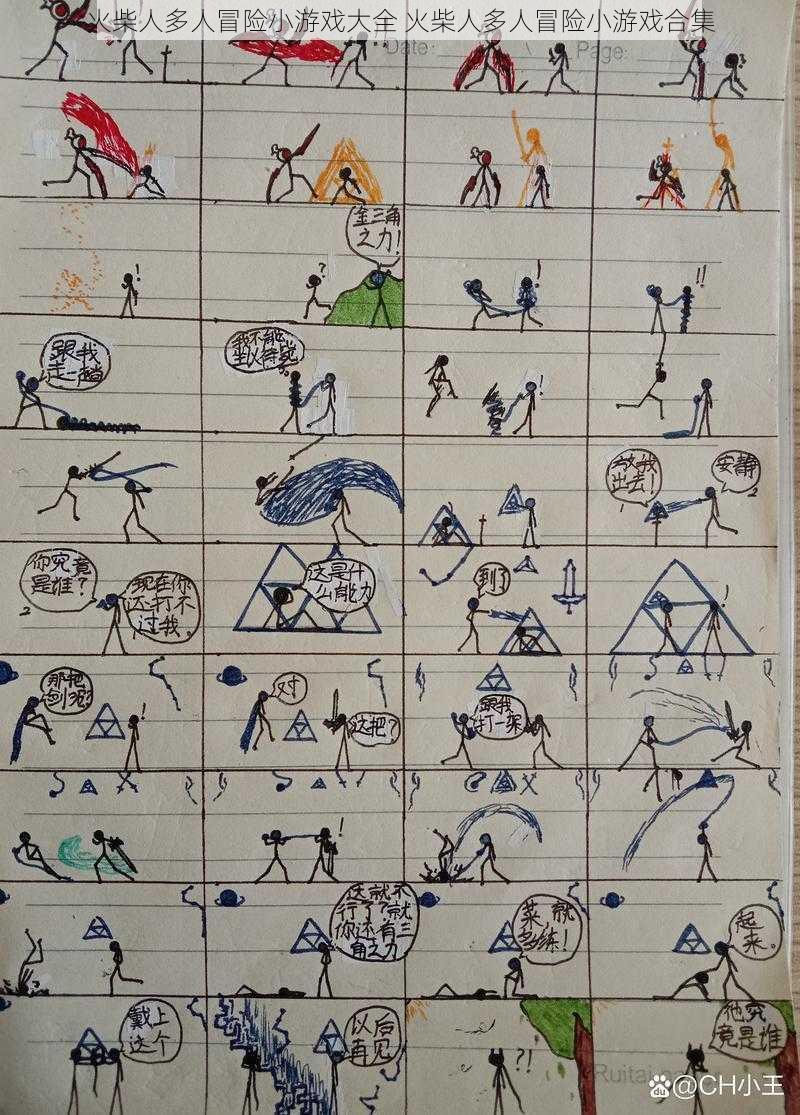 火柴人多人冒险小游戏大全 火柴人多人冒险小游戏合集
Date:
Page:
金三角
之力!
!
?
!
!!
跟我
走一趟
我不能
坐以待毙
。
!
放我
出去!
1
安静
2
你究竟
是谁?
2
现在你
还打不
过我。
这是什
么能力
到了
!
那把
剑呢
!
对
这把?
跟我
打一架
!
这就不
行了?就
你还有三
角之力
菜,就
多练!
起
来。
戴上
这个
以后
再见
?!
他究
竟是谁
Ruitai
@CH小王